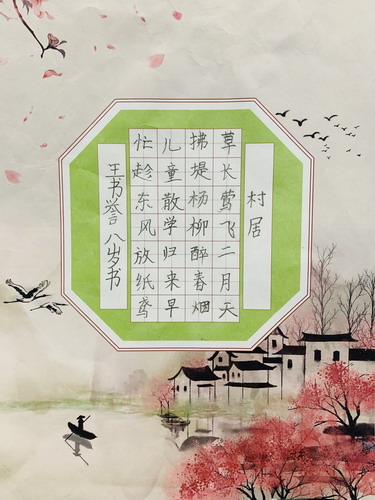 村居
草长莺飞二月天
拂堤杨柳醉春烟
儿童散学归来早
忙趁东风放纸鸢
王书誉 八岁书